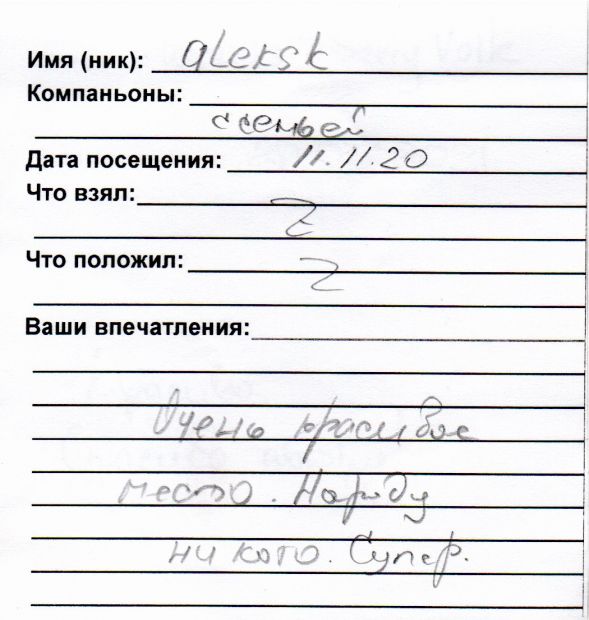 Имя (ник): aleksk
Компаньоны:
с семьей
Дата посещения: 11.11.20
Что взял:
Что положил:
Ваши впечатления:
Очень красивое
место. Народу
ни кого. Супер.